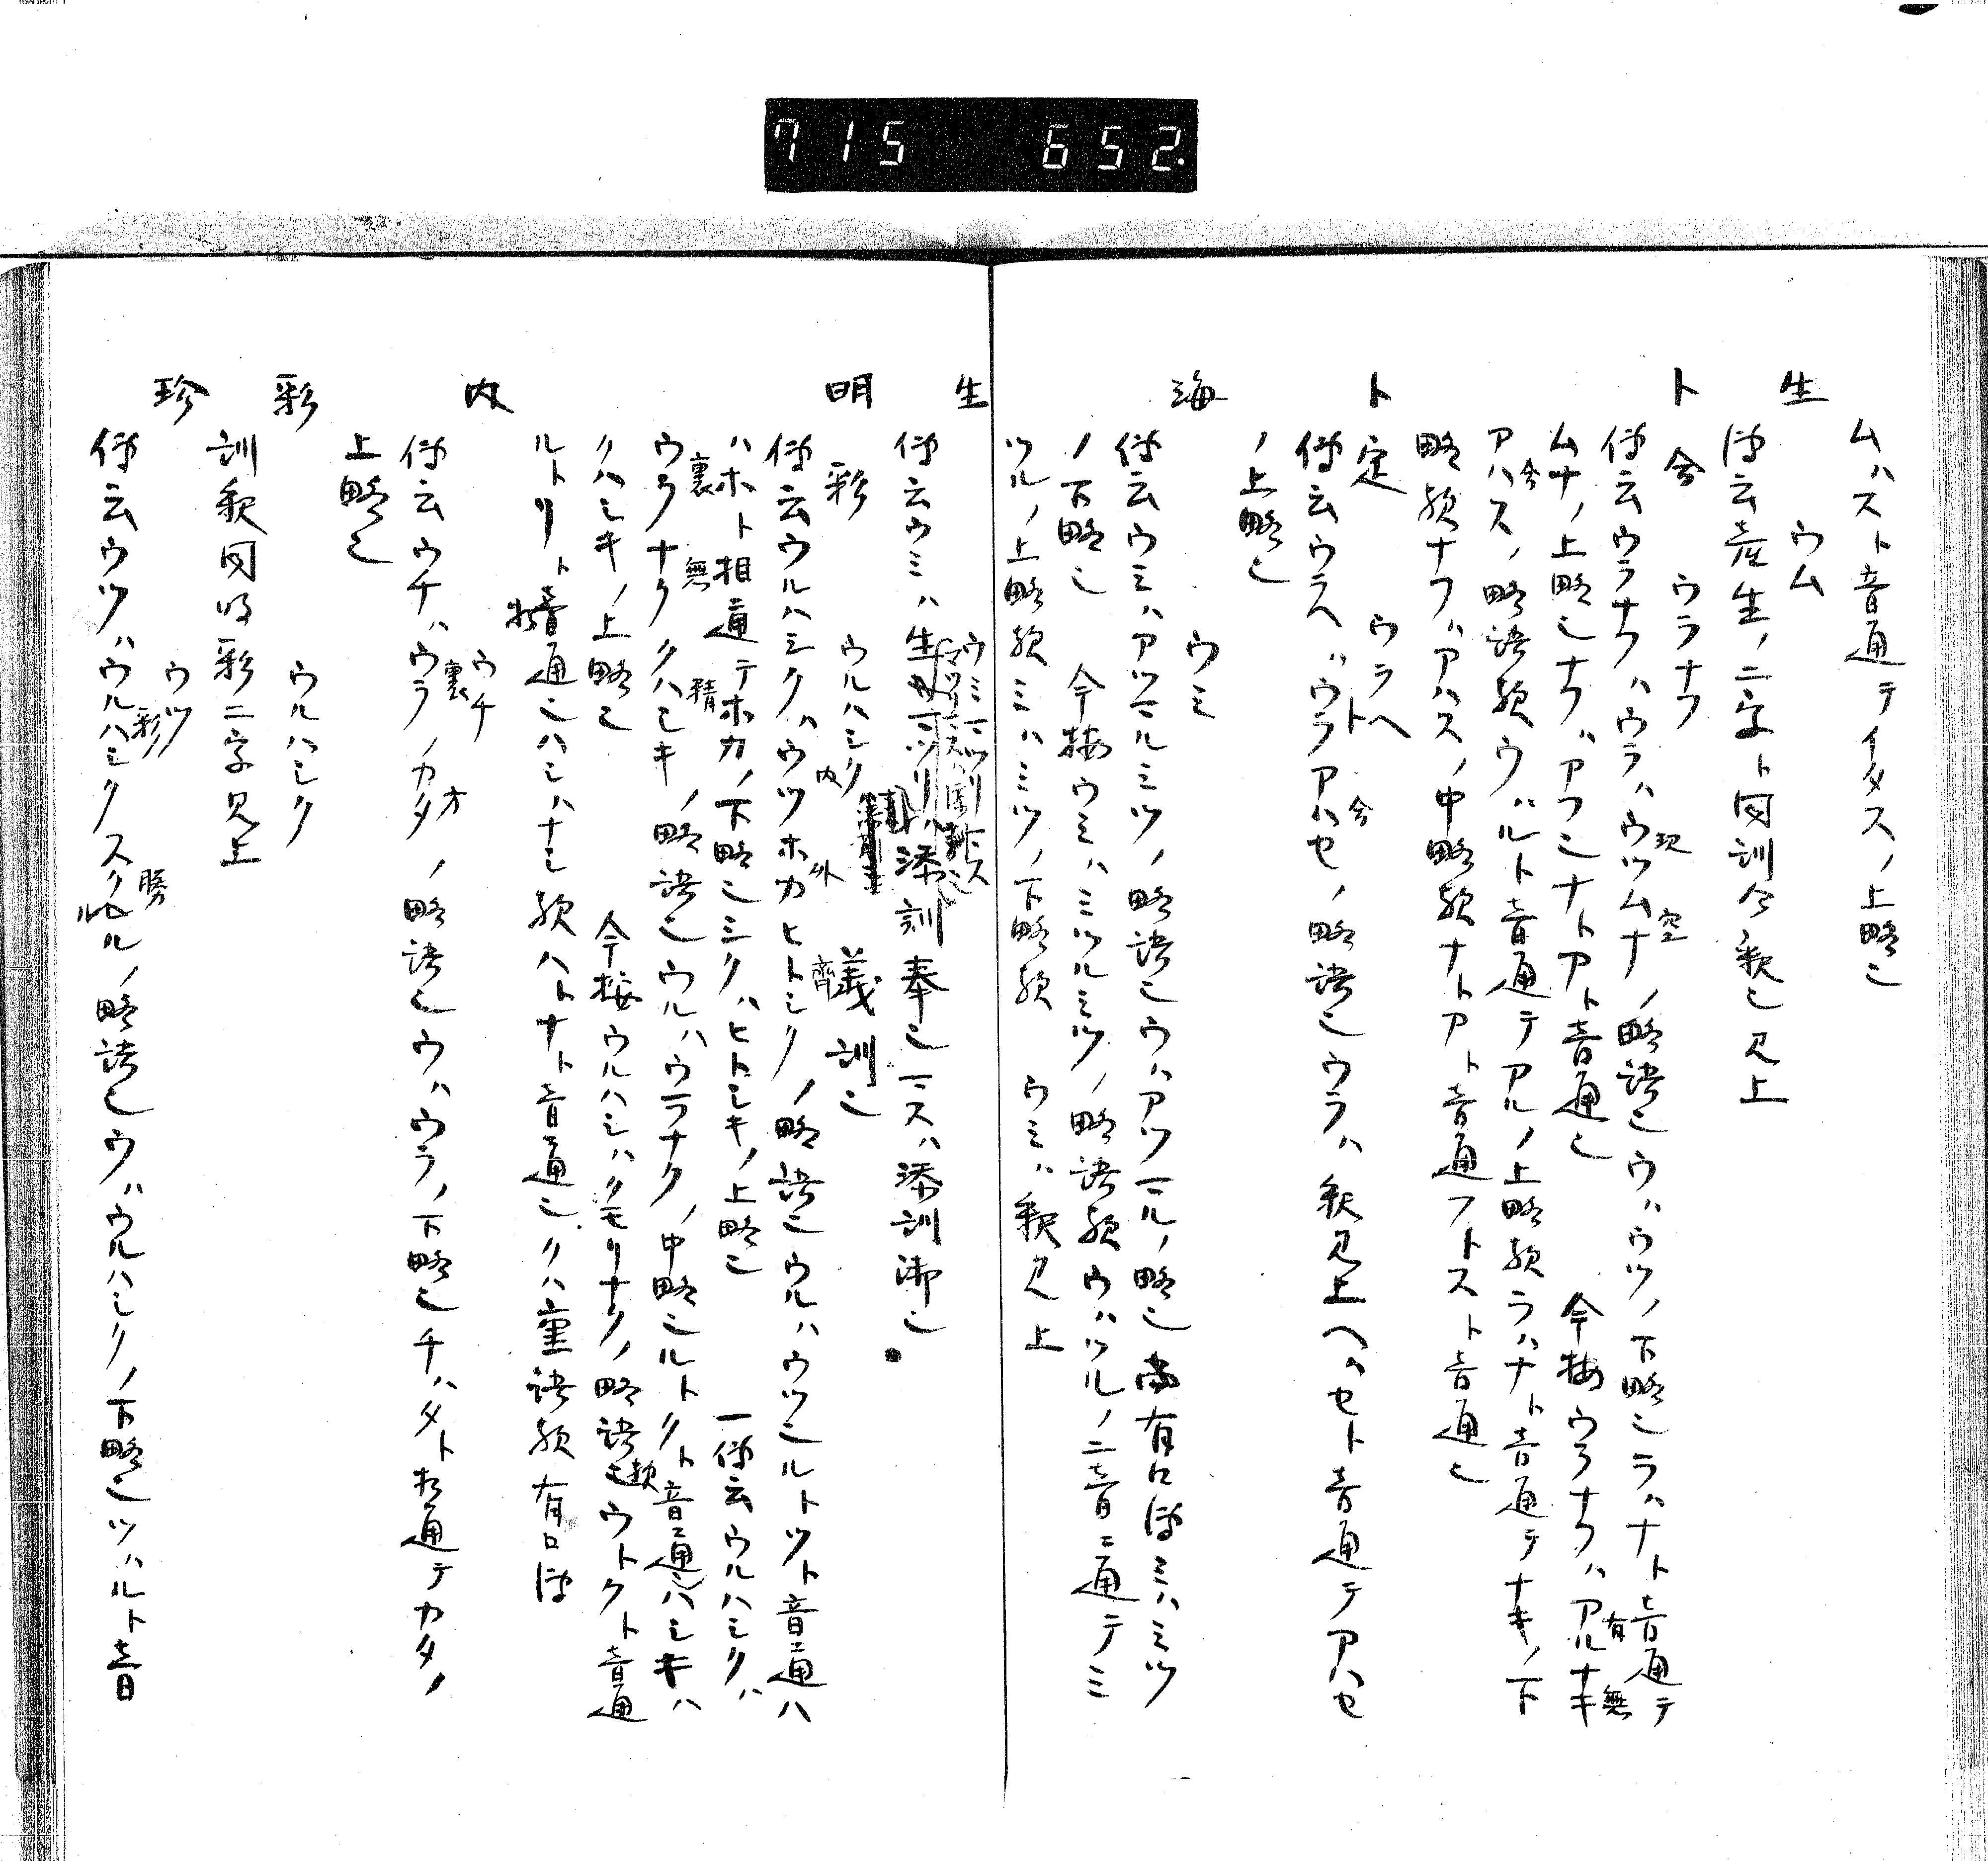 715 652.
ムハスト音通テイタスノ上略也
生 ウム
傳云產生ノ二字ト同訓今釈也見上
卜合 ウラナフ
傳云ウラナフハウラハウツムナノ略語也ウハウツノ下略也ラハナト音通テ
ムナノ上略也ナフハアフ也ナトアト音通也 今按ウラナフハアルナキ
アハスノ略語歟ウハルト音通テアルノ上略歟ラハナト音通テナキノ下
略歟ナフハアハスノ中略歟ナトアト音通フトスト音通也
卜定 ウラヘ
傳云ウラヘハウラアハセノ略語也ウラハ釈見上ヘハセト音通テアハセ
ノ上略也
海 ウミ
傳云ウミハアツマルミツノ略語也ウハアツマルノ略也尚有口傳ミハミツ
ノ下略也 今按ウミハミツルミツノ略語歟ウハツルノ二音ニ通テミ
ツルノ上略歟ミハミツノ下略歟 ウミハ釈見上
生
傳云ウミハ生 添訓奉也マスハ添訓御也
明彩 ウルハシク 義訓也
傳云ウルハシクハウツホカヒトシクノ略語也ウルハウツ也ルトツト音通ハ
ハホト相通テホカノ下略也シクハヒトシキノ上略也 一傳云ウルハシクハ
ウラナククハシキノ略語也ウルハウラナクノ中略也ルトクト音通ハシキハ
クハシキノ上略也 今按ウルハシハクモリナクノ略語歟ウトクト音通
ルトリト音通也ハシハナシ歟ハトナト音通也クハ重語歟有口傳
内 ウチ
傳云ウチハウラノカタノ略語也ウハウラノ下略也チハタト相通テカタノ
上略也
彩 ウルハシク
訓釈同明彩二字見上
珍 ウツ
傳云ウツハウルハシクスクルノ略語也ウハウルハシクノ下略也ツハルト音